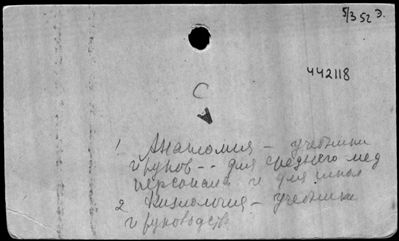 5/3 52 Э.
442118
С
1 Анатомия – учебники
и руков – для среднего мед
персонала и для школ
2 Физиология – учебники
и руководств